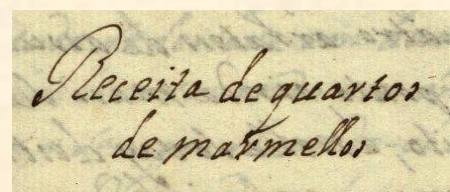 Receita de quartos
de marmellos